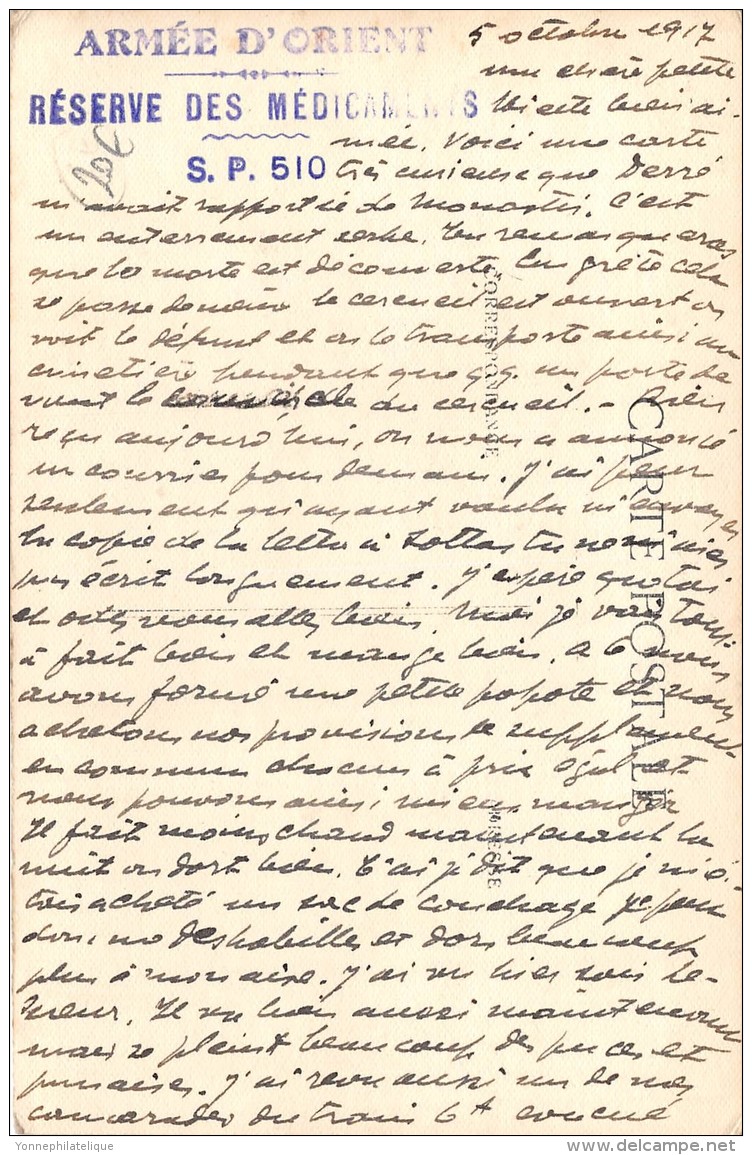 ARMÉE D'ORIENT
RÉSERVE DES MÉDICAMENTS
S. P. 510
20€
5 octobre 1917
ma chère petite
bien ai-
mée. Voici une carte
très curieuse que Derré
m'avait rapportée de Monastir. C'est
un enterrement serbe. Tu remarqueras
que la morte est découverte. En Grèce cela
se passe de même le cercueil est ouvert on
voit le défunt et on le transporte ainsi au
cimetière pendant que qq. un porte de
vant le couvercle du cercueil. - Rien
reçu aujourd'hui, on nous a annoncé
un courrier pour demain. J'ai peur
seulement qu'ayant voulu m'envoyer
la copie de la lettre à tu ne m'aies
pas écrit longuement. J'espère que toi
et vous allez bien. Moi je vais tout
à fait bien et mange bien. nous
avons formé une petite popote et nous
achetons nos provisions de supplément
en commun chacun à prix égal et
nous pouvons ainsi mieux manger
Il fait moins chaud maintenant la
nuit on dort bien. T'ai-je dit que je m'é-
tais acheté un sac de couchage je peux
donc me déshabiller et dors beaucoup
plus à mon aise. J'ai vu hier soir Le-
sueur. Il va bien aussi maintenant
mais se plaint beaucoup des puces et
punaises. J'ai revu aussi un de nos
camarades du train
CORRESPONDANCE
CARTE POSTALE
ADRESSE
Yonnephilatelique
delcampe.net